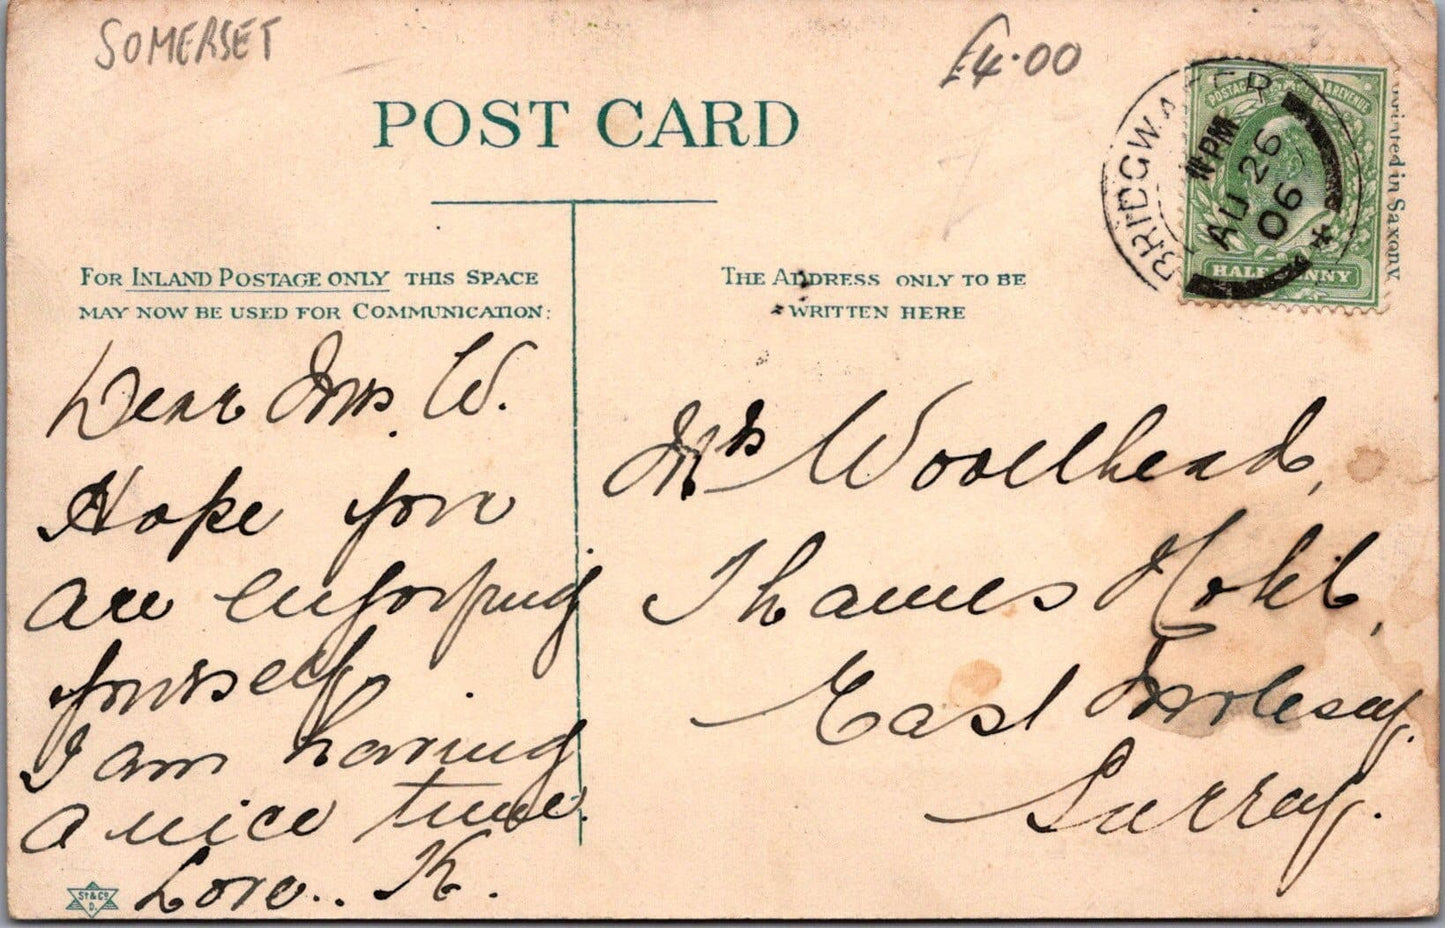 SOMERSET
£4.00
POST CARD
BRIDGWATER
11 PM
AU 26
06
POSTAGE & REVENUE
HALFPENNY
Printed in Saxony
FOR INLAND POSTAGE ONLY THIS SPACE
MAY NOW BE USED FOR COMMUNICATION:
THE ADDRESS ONLY TO BE
WRITTEN HERE
Dear Mrs. W.
Hope you
are enjoying
yourself.
I am having
a nice time.
Love.. K.
Mrs Woollhead,
Thames Hotel,
East Molesey.
Surrey.
St & Co
D.